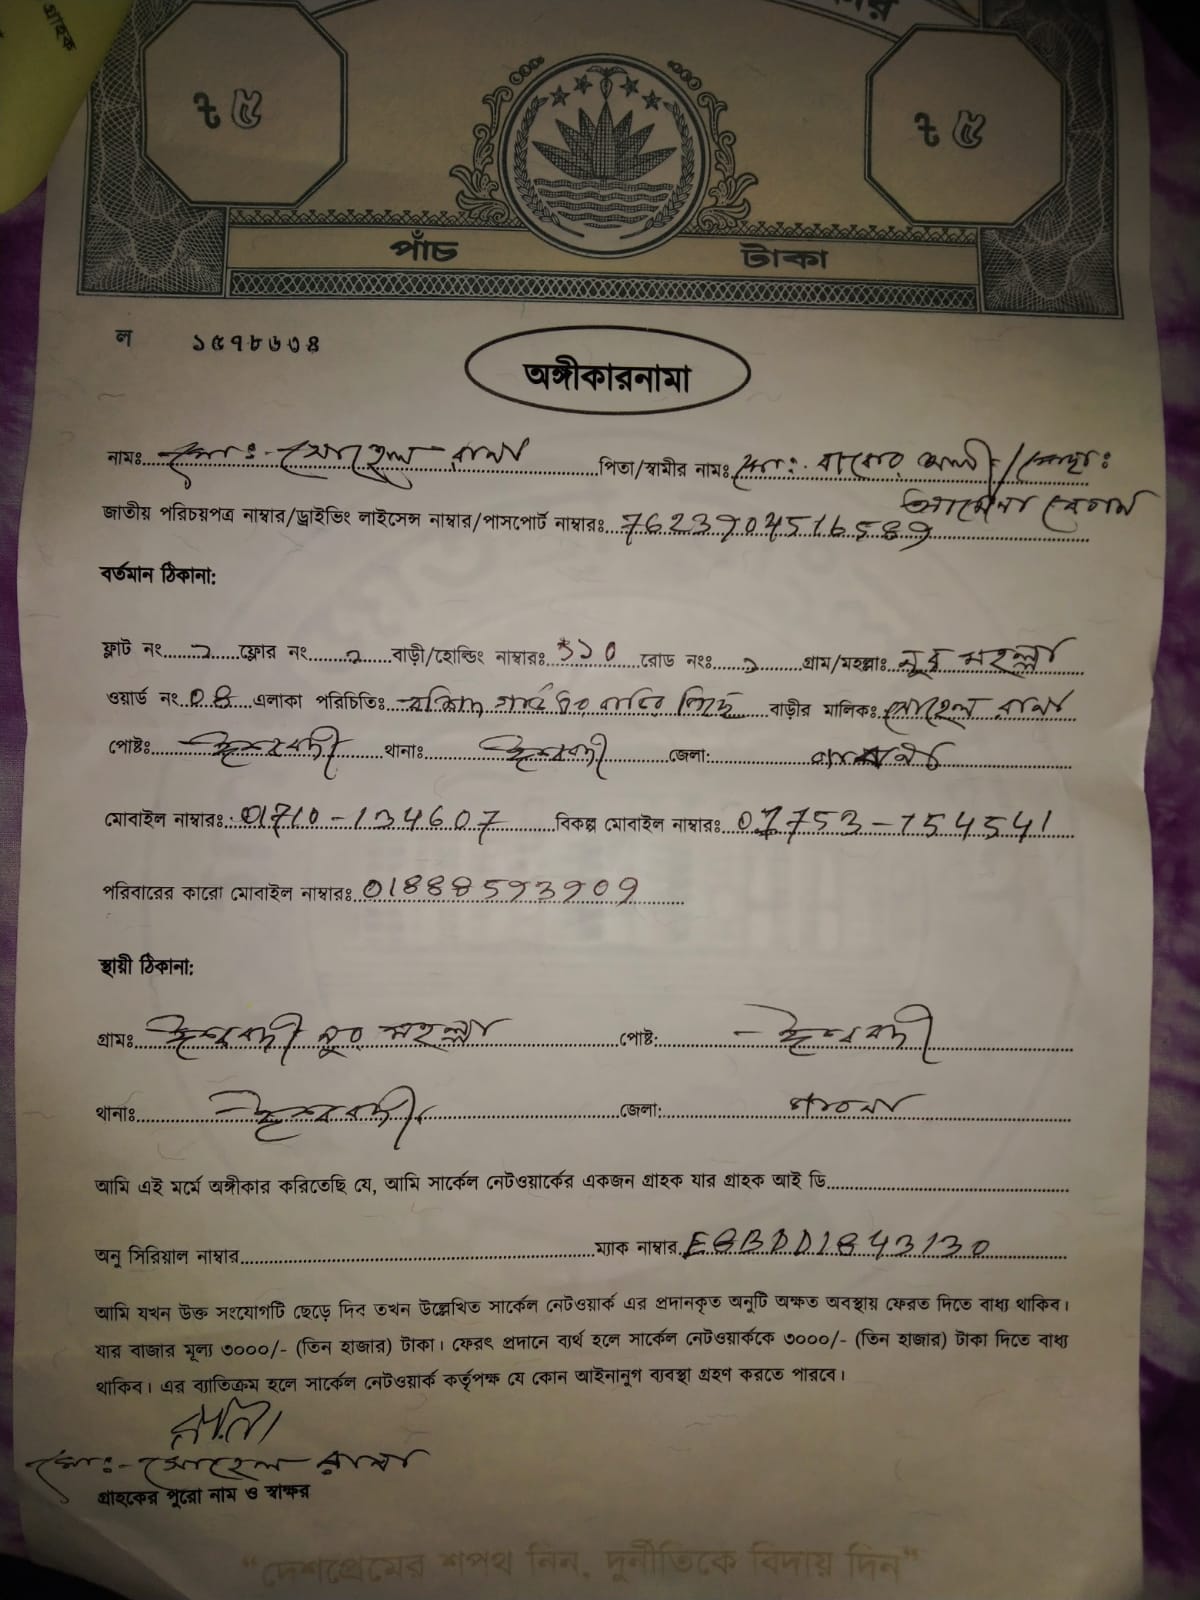 গ্রাহক
৳ ৫
৳ ৫
পাঁচ টাকা
ল ১৫৭৮৬৩৪
অঙ্গীকারনামা
নামঃ মোঃ- সোহেল রানা পিতা/স্বামীর নামঃ মোঃ- আলী / মোছাঃ
আমেনা বেগম
জাতীয় পরিচয়পত্র নাম্বার/ড্রাইভিং লাইসেন্স নাম্বার/পাসপোর্ট নাম্বারঃ
বর্তমান ঠিকানা:
ফ্লাট নং ফ্লোর নং বাড়ী/হোল্ডিং নাম্বারঃ ৩১০ রোড নংঃ গ্রাম/মহল্লাঃ নুর মহল্লা
ওয়ার্ড নং 08 এলাকা পরিচিতিঃ বাড়ীর মালিকঃ সোহেল রানা
পোষ্টঃ ঈশ্বরদী থানাঃ ঈশ্বরদী জেলা: পাবনা
মোবাইল নাম্বারঃ 01710-134607 বিকল্প মোবাইল নাম্বারঃ 01753-154541
পরিবারের কারো মোবাইল নাম্বারঃ
স্থায়ী ঠিকানা:
গ্রামঃ ঈশ্বরদী নুর মহল্লা পোষ্ট: ঈশ্বরদী
থানাঃ ঈশ্বরদী জেলা: পাবনা
আমি এই মর্মে অঙ্গীকার করিতেছি যে, আমি সার্কেল নেটওয়ার্কের একজন গ্রাহক যার গ্রাহক আই ডি
অনু সিরিয়াল নাম্বার ম্যাক নাম্বার
আমি যখন উক্ত সংযোগটি ছেড়ে দিব তখন উল্লেখিত সার্কেল নেটওয়ার্ক এর প্রদানকৃত অনুটি অক্ষত অবস্থায় ফেরত দিতে বাধ্য থাকিব।
যার বাজার মূল্য ৩০০০/- (তিন হাজার) টাকা। ফেরৎ প্রদানে ব্যর্থ হলে সার্কেল নেটওয়ার্ককে ৩০০০/- (তিন হাজার) টাকা দিতে বাধ্য
থাকিব। এর ব্যাতিক্রম হলে সার্কেল নেটওয়ার্ক কর্তৃপক্ষ যে কোন আইনানুগ ব্যবস্থা গ্রহণ করতে পারবে।
মোঃ- সোহেল রানা
গ্রাহকের পুরো নাম ও স্বাক্ষর
“দেশপ্রেমের শপথ নিন, দুর্নীতিকে বিদায় দিন”